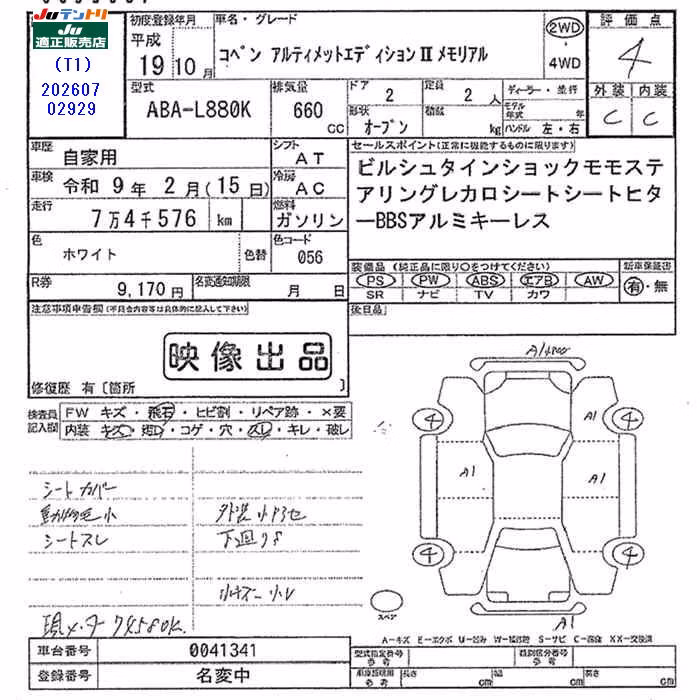 JUテントリ
JU適正販売店
(T1)
202607
02929
初度登録年月
平成
19 10月
車名・グレード
コペン アルティメットエディションⅡ メモリアル
2WD
4WD
評価点
4
外装 内装
C C
型式
ABA-L880K
排気量
660
cc
ドア
2
形状
オープン
定員
2 人
積載
kg
ディーラー・並行
モデル年式
年
ハンドル 左・右
車歴
自家用
シフト
AT
車検
令和 9年 2月(15日)
冷房
AC
走行
7万4千576 km
燃料
ガソリン
色
ホワイト
色替
色コード
056
R券
9,170円
名変通知期限
月 日
セールスポイント(正常に機能するものに限ります)
ビルシュタインショックモモステ
アリングレカロシートシートヒタ
ーBBSアルミキーレス
装備品(純正品に限り〇をつけてください)
PS PW ABS エアB AW
SR ナビ TV カワ
新車保証書
有・無
後日品
注意事項申告欄(不具合内容等は具体的に記入して下さい)
映像出品
修復歴 有〔箇所 〕
検査員記入欄
FW キズ・飛石・ヒビ割・リペア跡・×要
内装 キズ・汚レ・コゲ・穴・スレ・キレ・破レ
シートカバー
動物毛小
シートスレ
外装小キズ
下廻りS
現メーター 74580K
A1
4
4
A1
A1
A1
4
4
A1
スペア
A-キズ E-エクボ U-凹み W-補修跡 S-サビ C-腐蝕 XX-交換済
車台番号
0041341
登録番号
名変中
型式指定番号
参考
類別区分番号
参考
車庫証明用
参考
長さ cm
幅 cm
高さ cm